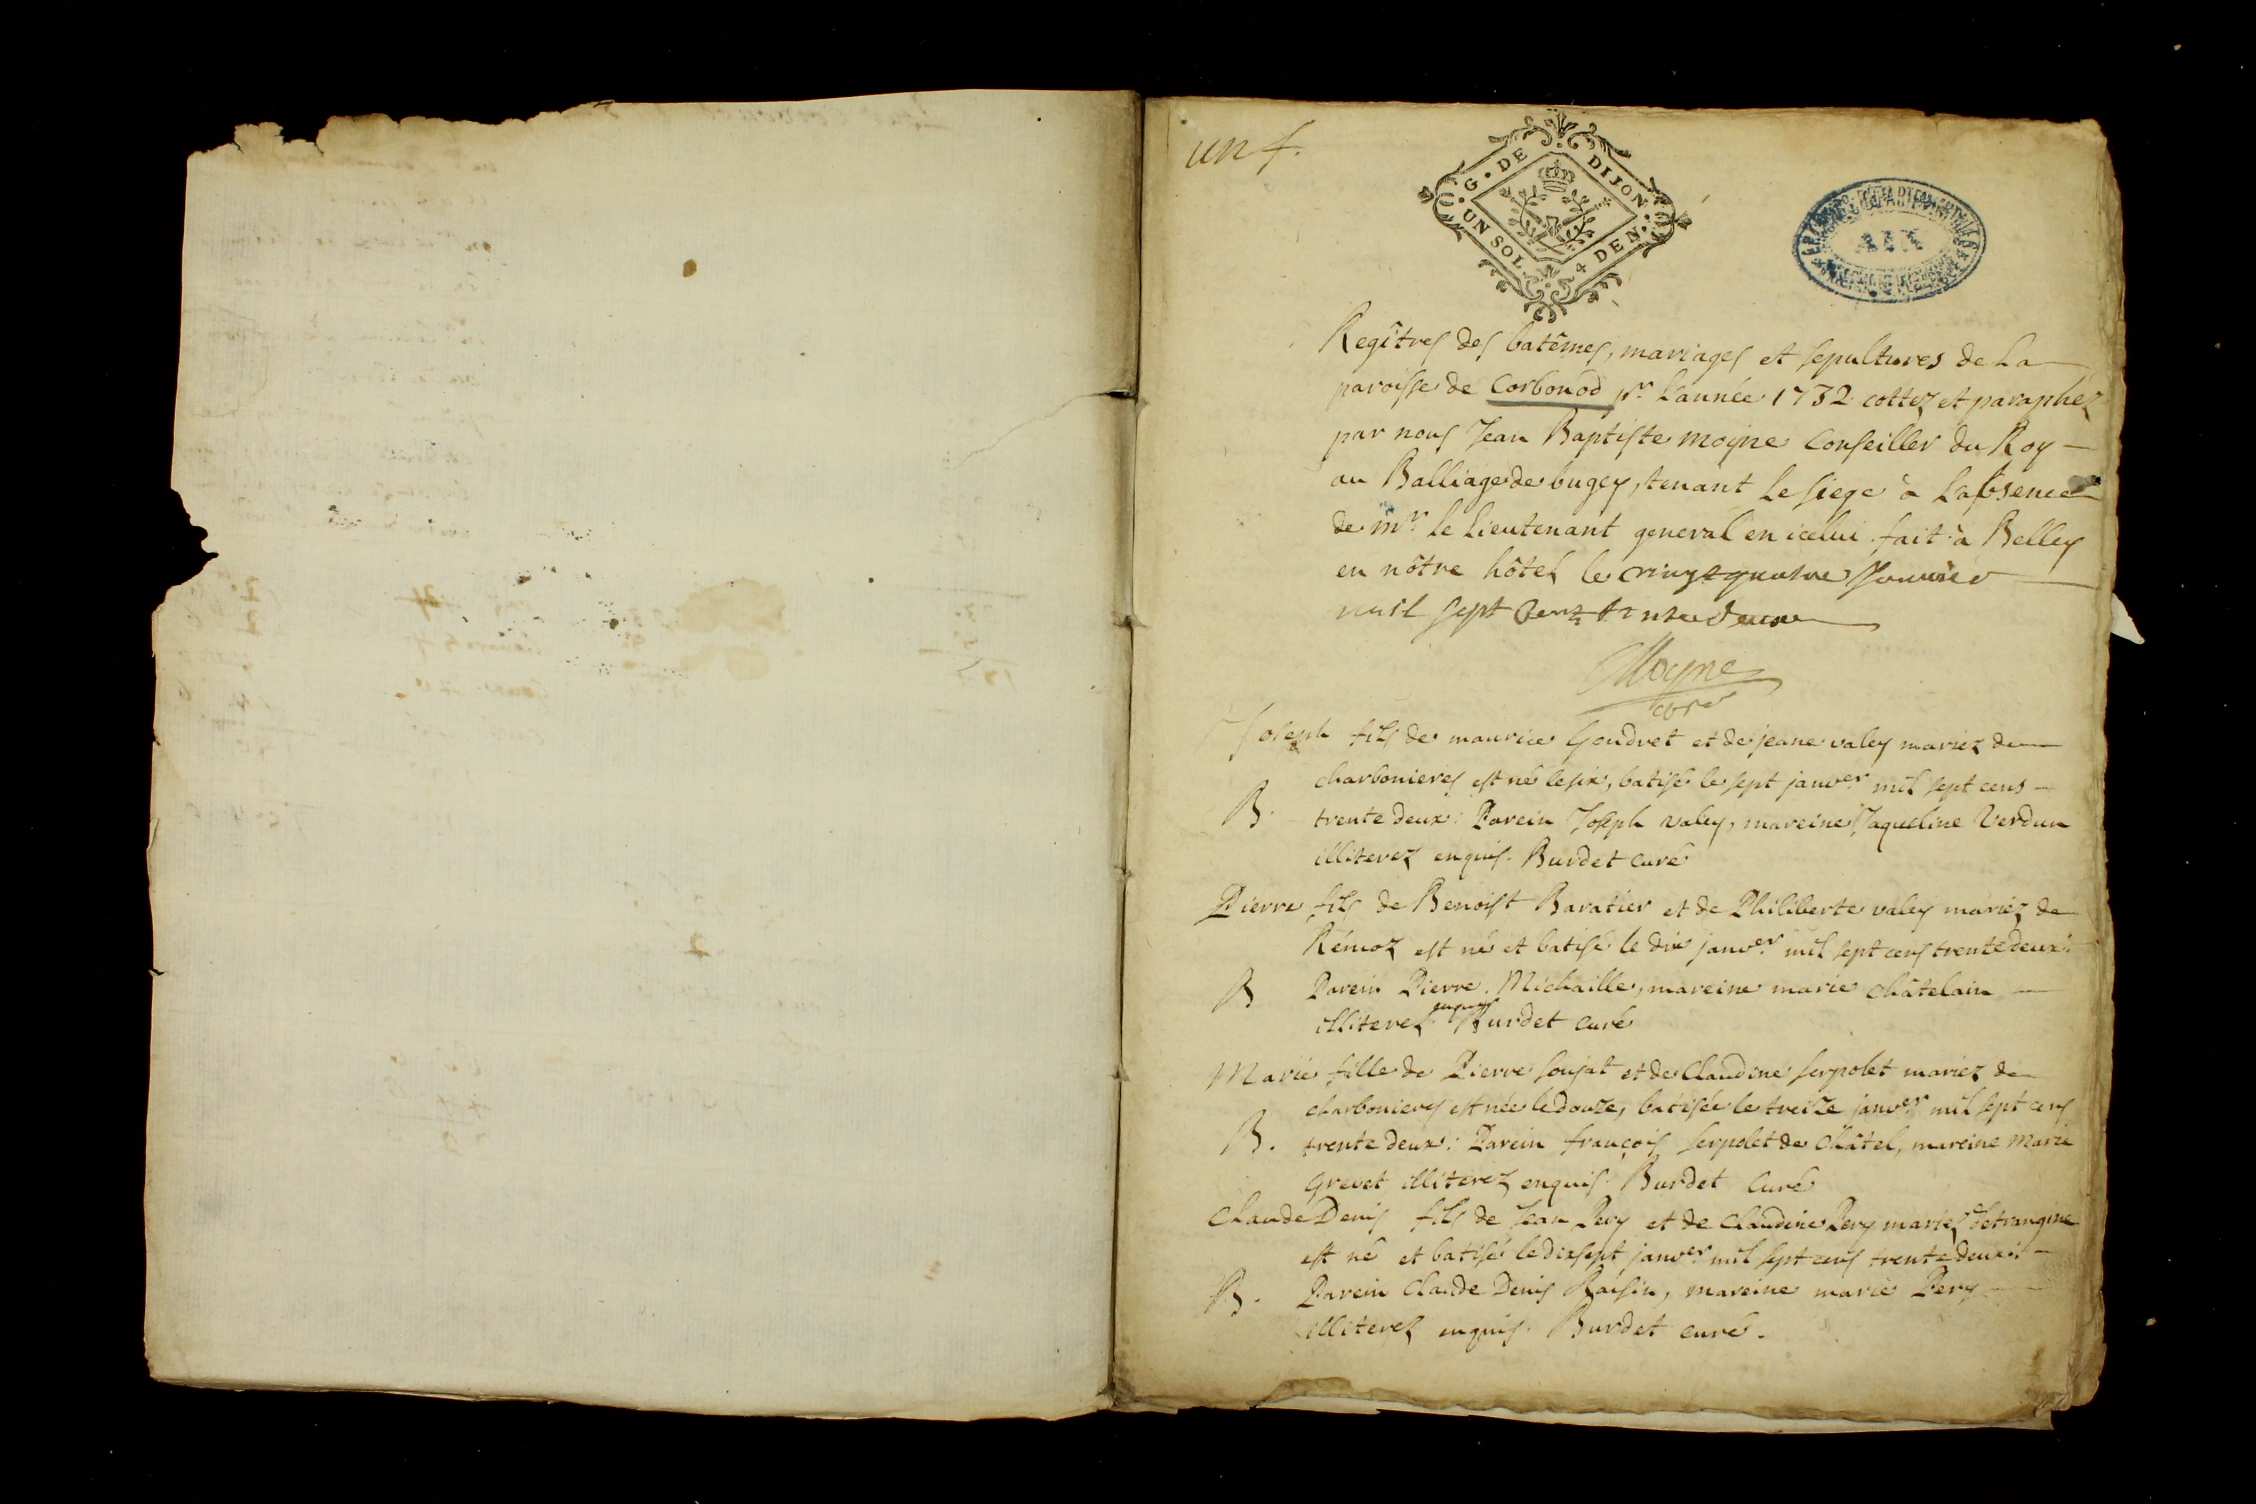 un f.
G. DE DIJON.
UN SOL. 4 DEN.
AIN
Regîtres des batêmes, mariages et sepultures de La
paroisse de Corbonod pr. L'année 1732 cottez et paraphéz
par nous Jean Baptiste moyne Conseiller du Roy
au Balliage de bugey, tenant Le siege à L'absence
de Mr. Le Lieutenant general en icelui. fait à Belley
en nôtre hôtel le vingt quatre Janvier
mil sept Cent trente deux
Moyne
Joseph fils de maurice Goudret et de jeane valey mariez de
charbonieres est né le six, batisé le sept janver. mil sept cens
B. trente deux: Parein Joseph valey, mareine Jaqueline Verdun
illiterez enquis. Burdet curé
Pierre fils de Benoist Baratier et de Philiberte valey mariez de
Rémoz est né et batisé le dix janver. mil sept cens trente deux:
B Parein Pierre Michaille, mareine marie Châtelain
illiterez enquis Burdet curé
Marie fille de Pierre soujat et de Claudine serpolet mariez de
charbonieres est née le douze, batisée le treize janver mil sept cens
B. trente deux: Parein françois serpolet de Châtel, mareine Marie
Grevet illiterez enquis. Burdet Curé
Claude Denis fils de Jean Pery et de Claudine Pery mariez d'etrangine
est né et batisé le dixsept janver. mil sept cens trente deux:
B. Parein Claude Denis Raisin, mareine marie Pery
illiterez enquis. Burdet curé.